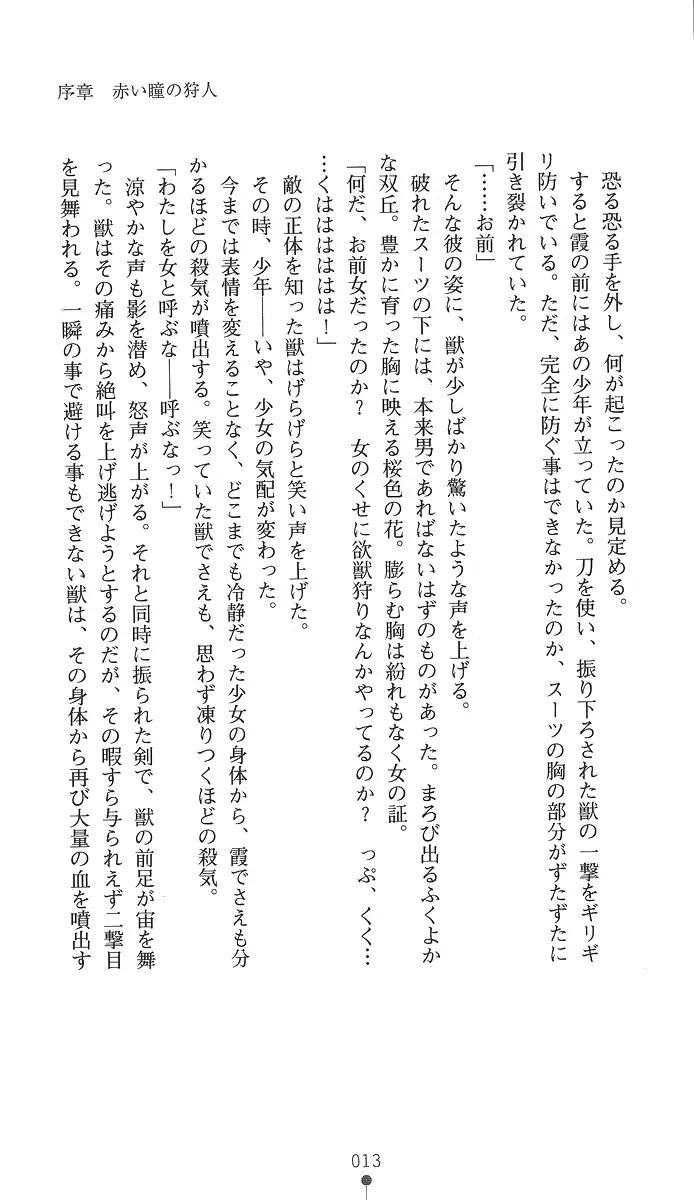 序章　赤い瞳の狩人
恐る恐る手を外し、何が起こったのか見定める。
すると霞の前にはあの少年が立っていた。刀を使い、振り下ろされた獣の一撃をギリギ
リ防いでいる。ただ、完全に防ぐ事はできなかったのか、スーツの胸の部分がずたずたに
引き裂かれていた。
「……お前」
そんな彼の姿に、獣が少しばかり驚いたような声を上げる。
破れたスーツの下には、本来男であればないはずのものがあった。まろび出るふくよか
な双丘。豊かに育った胸に映える桜色の花。膨らむ胸は紛れもなく女の証。
「何だ、お前女だったのか？　女のくせに欲獣狩りなんかやってるのか？　っぷ、くく…
…くはははははは！」
敵の正体を知った獣はげらげらと笑い声を上げた。
その時、少年――いや、少女の気配が変わった。
今までは表情を変えることなく、どこまでも冷静だった少女の身体から、霞でさえも分
かるほどの殺気が噴出する。笑っていた獣でさえも、思わず凍りつくほどの殺気。
「わたしを女と呼ぶな――呼ぶなっ！」
涼やかな声も影を潜め、怒声が上がる。それと同時に振られた剣で、獣の前足が宙を舞
った。獣はその痛みから絶叫を上げ逃げようとするのだが、その暇すら与えられえず二撃目
を見舞われる。一瞬の事で避ける事もできない獣は、その身体から再び大量の血を噴出す
013